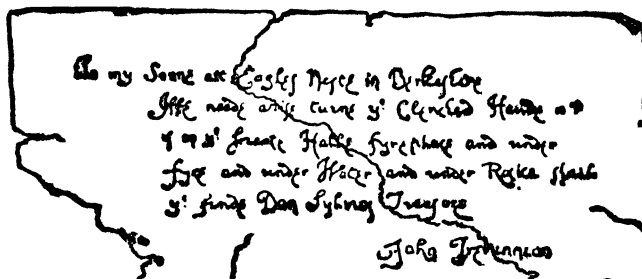 To my Sonne att Eagles Neste in Berkeshire
Iffe neede arise turne yᵉ Clenched Hande
yᵉ Greate Halle fyreplace and under
fyre and under Water and under Rocke shalle
yᵉ finde Don Sylvioz Treasore
John